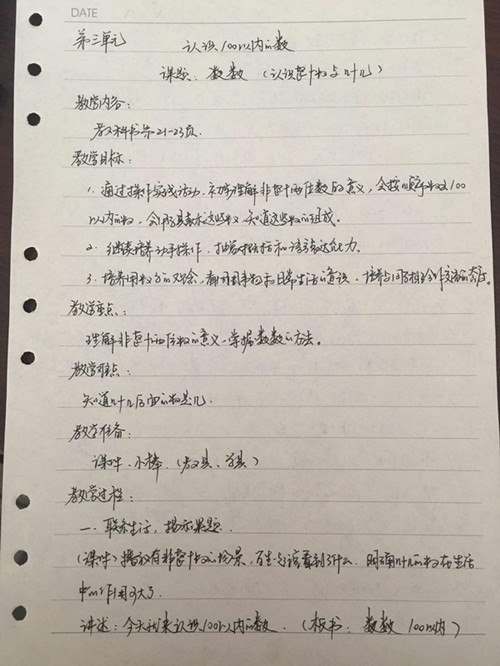 DATE
第三单元 认识100以内的数
课题：数数（认识整十数与几十几）
教学内容：
教科书第21-23页.
教学目标：
1. 通过操作实践活动，初步理解非整十两位数的意义，会按顺序数100
以内的数，会用具表示这些数，知道这些数的组成。
2. 继续培养动手操作，和语言表达能力。
3. 培养用数 的 ，和日常生活的意识，培养与同学 合作交流的态度。
教学重点：
理解非整十两位数的意义，掌握数数的方法。
教学难点：
知道几十几后面的数是几.
教学准备：
课件、小棒.（教具、学具）
教学过程：
一、联系生活，揭示课题.
（课件）播放有非整十数的场景，学生看到了什么. 明确几十几的数在生活
中的作用可大了.
讲述：今天我们来认识100以内的数.（板书：数数 100以内）